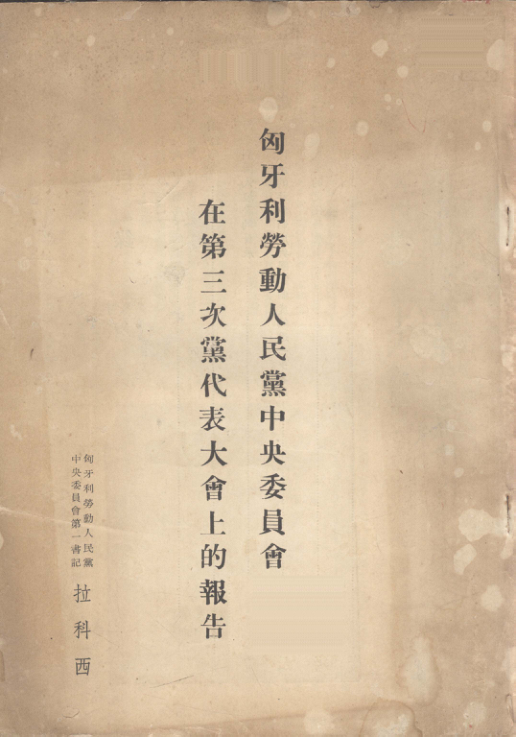 匈牙利勞動人民黨中央委員會
在第三次黨代表大會上的報告
匈牙利勞動人民黨
中央委員會第一書記
拉科西